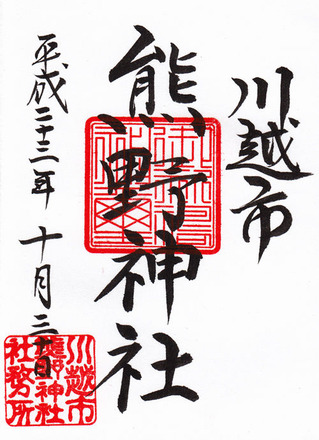 川越市
熊野神社
平成二十三年 十月
川越市
熊野神社
社務所